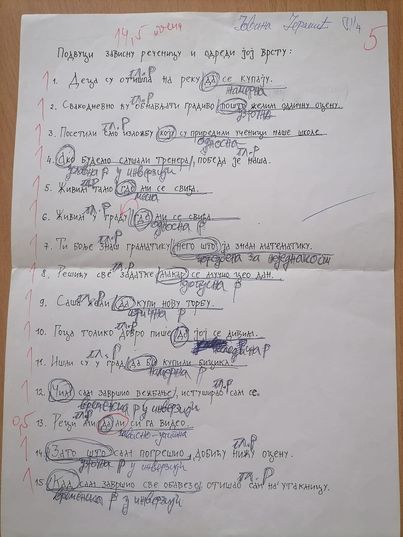 14,5 бодова Јована VI/4 5
Подвуци зависну реченицу и одреди јој врсту:
гл. Р
1. Деца су отишла на реку да се купају.
намерна
2. Свакодневно ћу обнављати градиво пошто желим одличну оцену.
узрочна
гл. Р
3. Посетили смо изложбу коју су приредили ученици наше школе.
односна
4. Ако будемо слушали тренера, победа је наша.
Р у инверзији
гл. Р
5. Живим тамо где ми се свиђа.
месна
гл. Р
6. Живим у граду где ми се свиђа.
односна Р
гл. Р
7. Ти боље знаш граматику него што ја знам математику.
поредбена за једнакост
гл. Р
8. Решићу све задатке макар се мучио цео дан.
допусна Р
гл. Р
9. Саша жели да купи нову торбу.
изрична Р
гл. Р
10. Гоца толико добро пише да јој се дивим.
последична Р
гл. Р
11. Ишли су у град да би купили бицикл.
намерна Р
гл. Р
12. Чим сам завршио вежбање, истуширао сам се.
временска Р у инверзији
0,5 13. Реци ми да ли си га видео.
зависно-упитна
гл. Р
14. Зато што сам погрешио, добићу нижу оцену.
узрочна Р у инверзији
гл. Р
15. Кад сам завршио све обавезе, отишао сам на утакмицу.
временска Р у инверзији